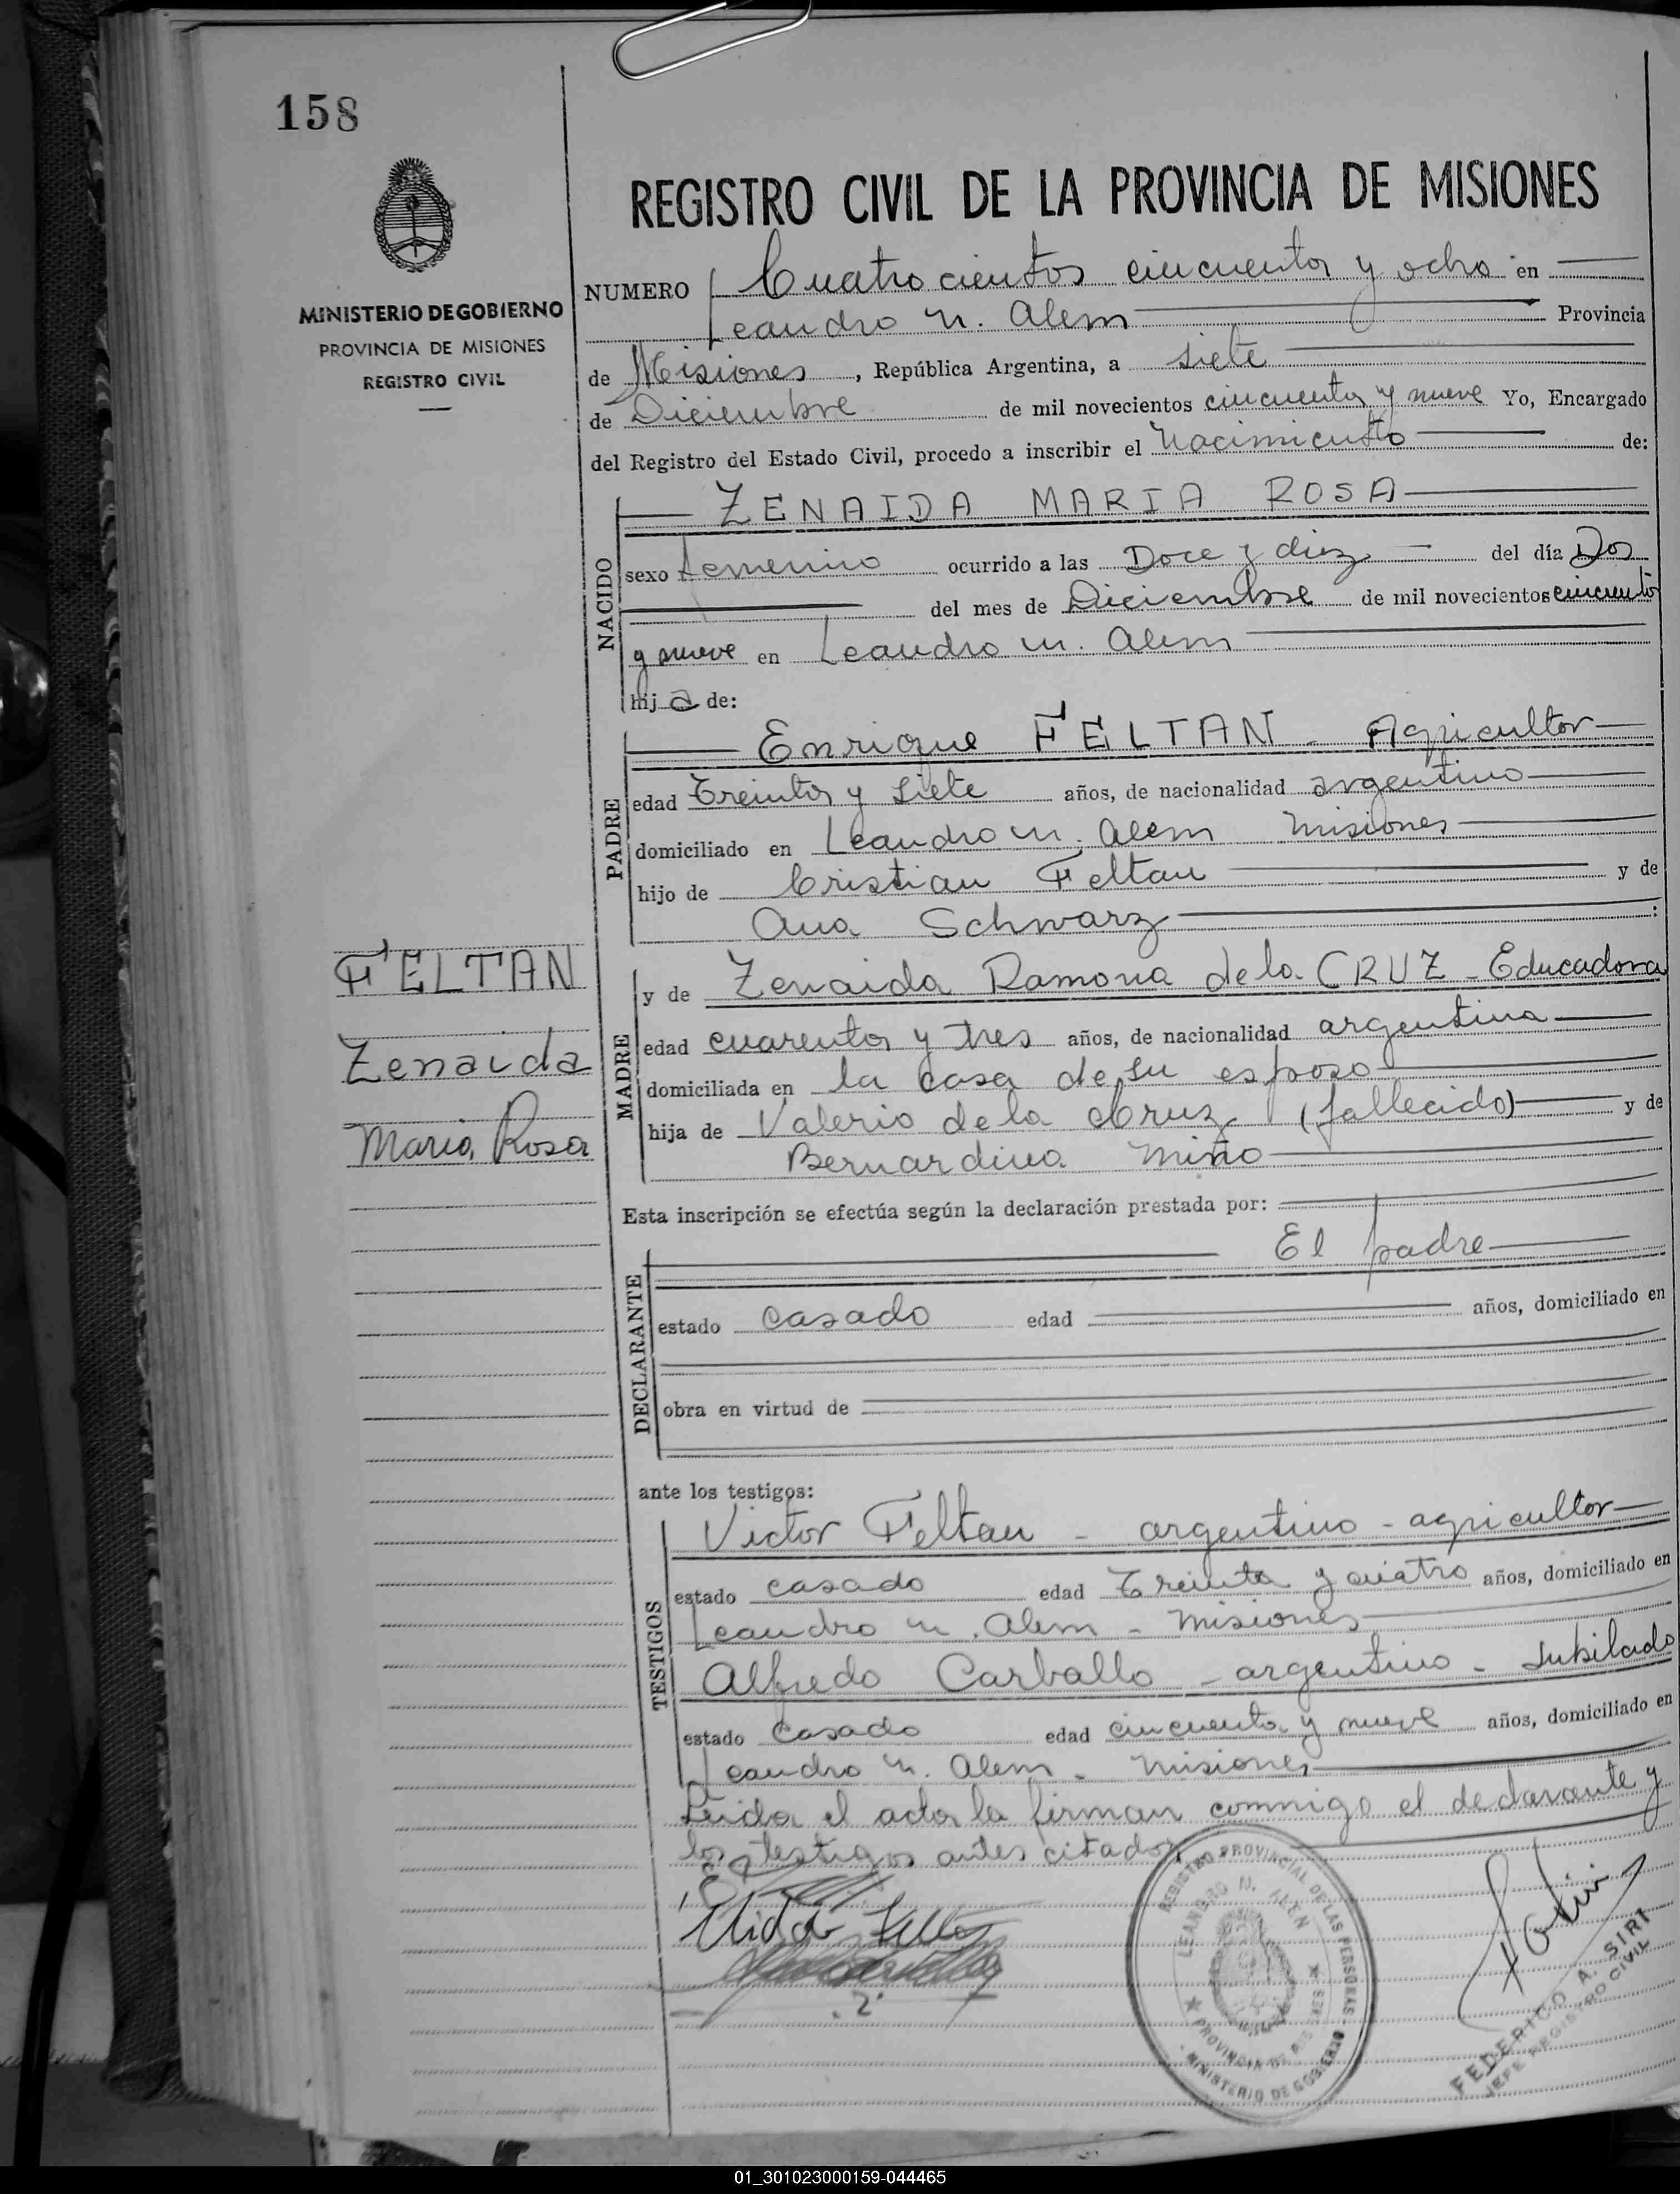 158
REGISTRO CIVIL DE LA PROVINCIA DE MISIONES
MINISTERIO DE GOBIERNO
PROVINCIA DE MISIONES
REGISTRO CIVIL
NUMERO Cuatrocientos cincuenta y ocho en
Leandro N. Alem Provincia
de Misiones, República Argentina, a siete
de Diciembre de mil novecientos cincuenta y nueve Yo, Encargado
del Registro del Estado Civil, procedo a inscribir el Nacimiento de:
NACIDO
ZENAIDA MARIA ROSA
sexo femenino ocurrido a las Doce y diez del día Dos
del mes de Diciembre de mil novecientos cincuenta
y nueve en Leandro N. Alem
hija de:
PADRE
Enrique FELTAN - Agricultor
edad Treinta y siete años, de nacionalidad argentino
domiciliado en Leandro N. Alem Misiones
hijo de Cristian Feltan y de
Ana Schwarz :
FELTAN
Zenaida
Maria Rosa
MADRE
y de Zenaida Ramona de la CRUZ - Educadora
edad cuarenta y tres años, de nacionalidad argentina
domiciliada en la casa de su esposo
hija de Valerio de la Cruz (fallecido) y de
Bernardina Miño
Esta inscripción se efectúa según la declaración prestada por:
DECLARANTE
El padre
estado casado edad años, domiciliado en
obra en virtud de
ante los testigos:
TESTIGOS
Victor Feltan - argentino - agricultor
estado casado edad Treinta y cuatro años, domiciliado en
Leandro N. Alem - Misiones
Alfredo Carballo - argentino - Jubilado
estado casado edad cincuenta y nueve años, domiciliado en
Leandro N. Alem - Misiones
Leida el acta la firman conmigo el declarante y
los testigos antes citados
REGISTRO PROVINCIAL DE LAS PERSONAS
LEANDRO N. ALEN
PROVINCIA DE MISIONES
MINISTERIO DE GOBIERNO
FEDERICO A. SIRI
JEFE REGISTRO CIVIL
01_301023000159-044465